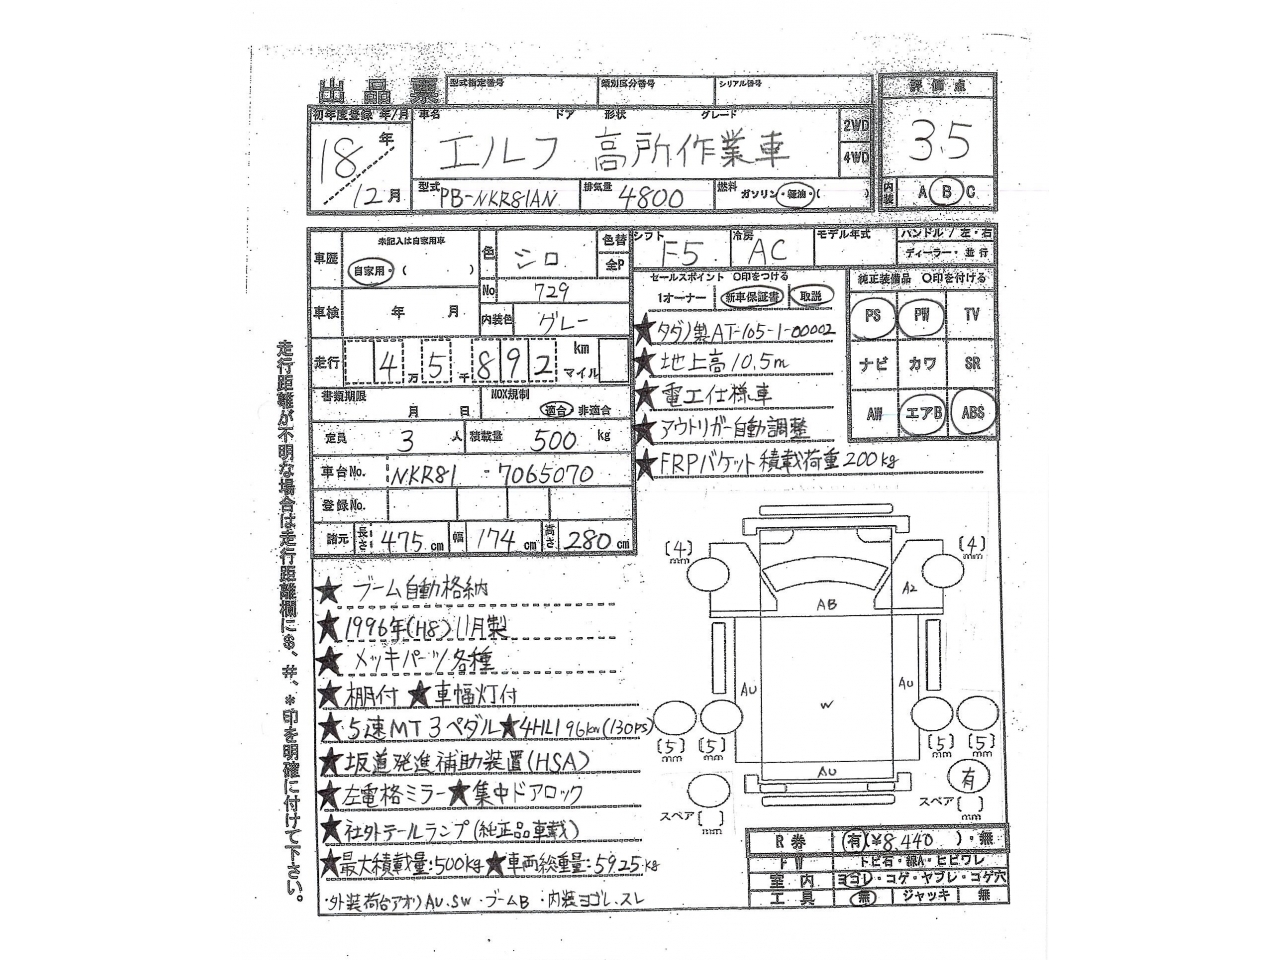 出品票
型式指定番号 類別区分番号 シリアル番号
評価点
3.5
内装 A B C
初年度登録 年/月
18年
12月
車名 ドア 形状 グレード
エルフ 高所作業車
2WD
4WD
型式 PB-NKR81AN
排気量 4800
燃料 ガソリン・軽油・( )
車歴 未記入は自家用車
自家用・( )
色 シロ
色替
全P
No 729
内装色 グレー
車検 年 月
走行 4万5千892 km
マイル
書類期限 月 日
NOX規制 適合・非適合
定員 3人 積載量 500 kg
車台No. NKR81 - 7065070
登録No.
諸元 長さ 475cm 幅 174cm 高さ 280cm
シフト F5
冷房 AC
モデル年式
ハンドル / 左・右
ディーラー・並行
セールスポイント ○印をつける
1オーナー 新車保証書 取説
★タダノ製AT-105-1-00002
★地上高10.5m
★電工仕様車
★アウトリガー自動調整
★FRPバケット積載荷重200kg
純正装備品 ○印を付ける
PS PW TV
ナビ カワ SR
AW エアB ABS
走行距離が不明な場合は走行距離欄に$、#、*印を明確に付けて下さい。
★ブーム自動格納
★1996年(H8)11月製
★メッキパーツ各種
★棚付 ★車幅灯付
★5速MT3ペダル★4HL1 96kw(130PS)
★坂道発進補助装置(HSA)
★左電格ミラー★集中ドアロック
★社外テールランプ(純正品車載)
★最大積載量:500kg★車両総重量:5925kg
・外装荷台アオリAU.SW ・ブームB ・内装ヨゴレ.スレ
(4)mm
(4)mm
A2
AB
AU
AU
W
(5)mm
(5)mm
(5)mm
(5)mm
AU
スペア( )mm
有
スペア( )mm
R券 有(¥8,440 )・無
FW トビ石・線A・ヒビワレ
室内 ヨゴレ・コゲ・ヤブレ・コゲ穴
工具 無 ジャッキ 無